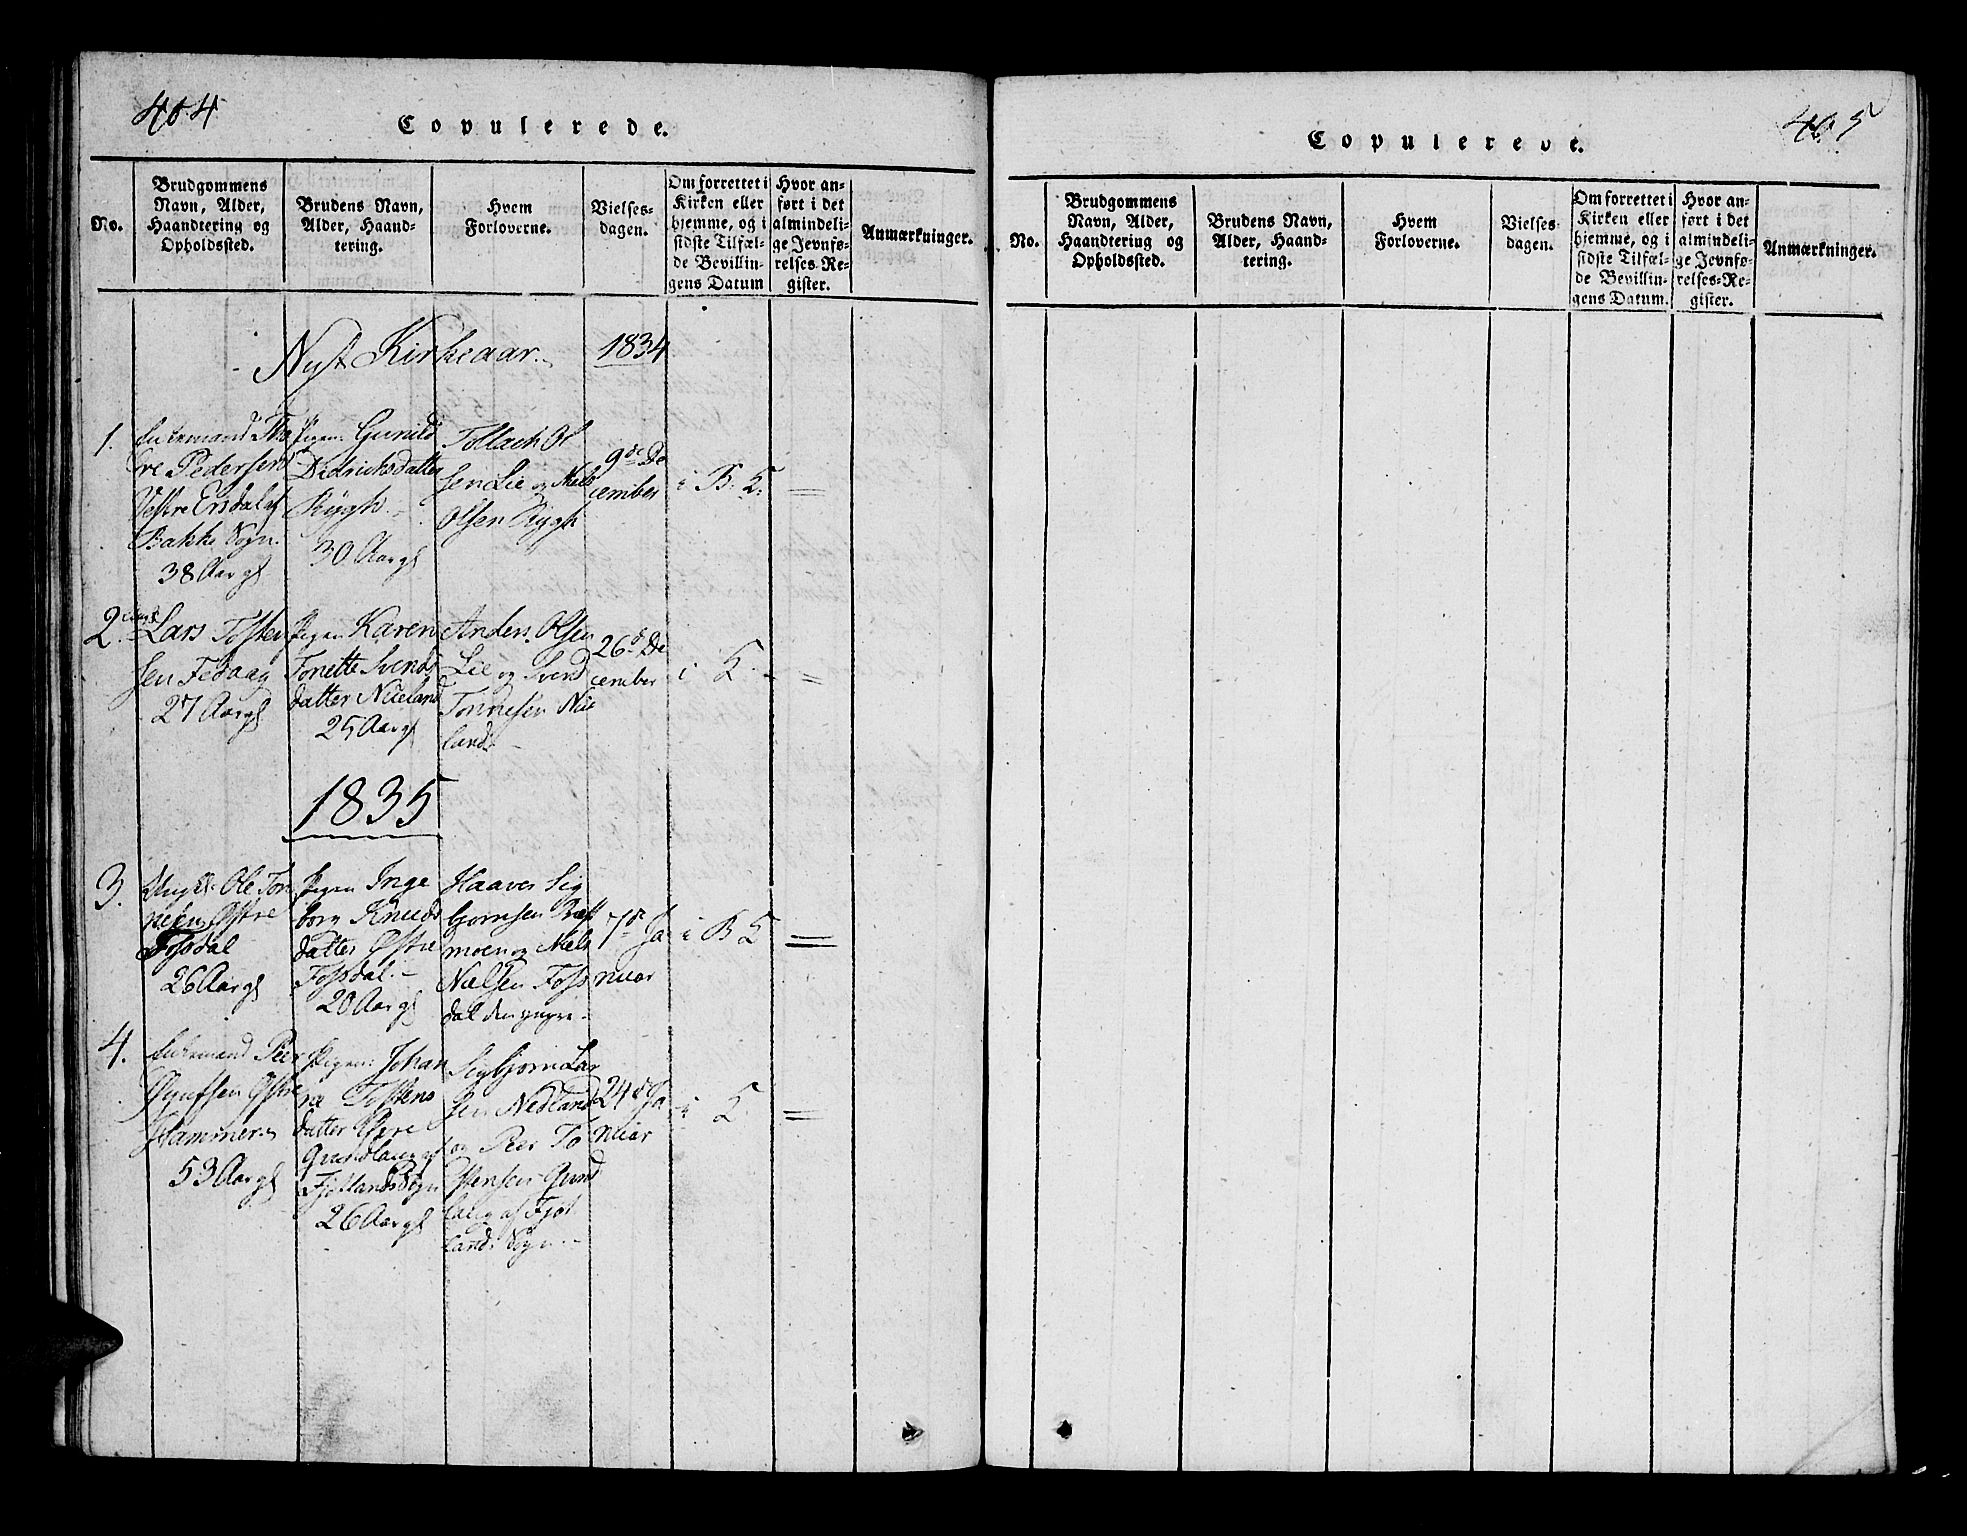 404
Copulerede.
No.
Brudgommens
Navn, Alder,
Haandtering og
Opholdssted.
Brudens Navn,
Alder, Haand-
tering.
Hvem
Forloverne.
Vielses-
dagen.
Om forrettet i
Kirken eller
hjemme, og i
sidste Tilfæl-
de Bevillin-
gens Datum
Hvor an-
ført i det
almindeli-
ge Jevnfø-
relses-Re-
gister.
Anmærkninger.
Nyt Kirkeaar. 1834
1.
Enkemand Tho
re Pedersen
Vestre Ersdal af
Bakke Sogn.
38 Aar gl
Pigen Gunild
Didrichsdatter
Rygh
30 Aar gl
Tollach Ol
sen Lie og Niels
Olsen Rygh
9de De
cember
i B. K.
=
2.
Ungk. Lars Tosten
sen Fedaag
27 Aar gl
Pigen Karen
Tonette Svends
datter Nueland
25 Aar gl
Anders Olsen
Lie og Svend
Tonnesen Nue
land
26d De
cember
i K.
=
1835
3.
Ungk. Ole Ton
nesen Østre
Fossdal
26 Aar gl
Pigen Inge
borg Knuds
datter Østre
Fossdal.
20 Aar gl
Haaver Sig
bjørnsen
moen og Niels
Nielsen Foss
dal den yngre
7de Ja
nuar
i B K
=
4.
Enkemand Peer
Østre
Hammer
53 Aar gl
Pigen Johan
ne Tostens
datter Øvre
af
Fjotlands Sogn
26 Aar gl
Sigbjørn Lar
sen Nedland
og Peer To
stensen Gund
laug af Fjot
lands Sogn
24d Ja
nuar
i K.
=
405
Copulerede.
No.
Brudgommens
Navn, Alder,
Haandtering og
Opholdssted.
Brudens Navn,
Alder, Haand-
tering.
Hvem
Forloverne.
Vielses-
dagen.
Om forrettet i
Kirken eller
hjemme, og i
sidste Tilfæl-
de Bevillin-
gens Datum.
Hvor an-
ført i det
almindeli-
ge Jevnfø-
relses-Re-
gister.
Anmærkninger.